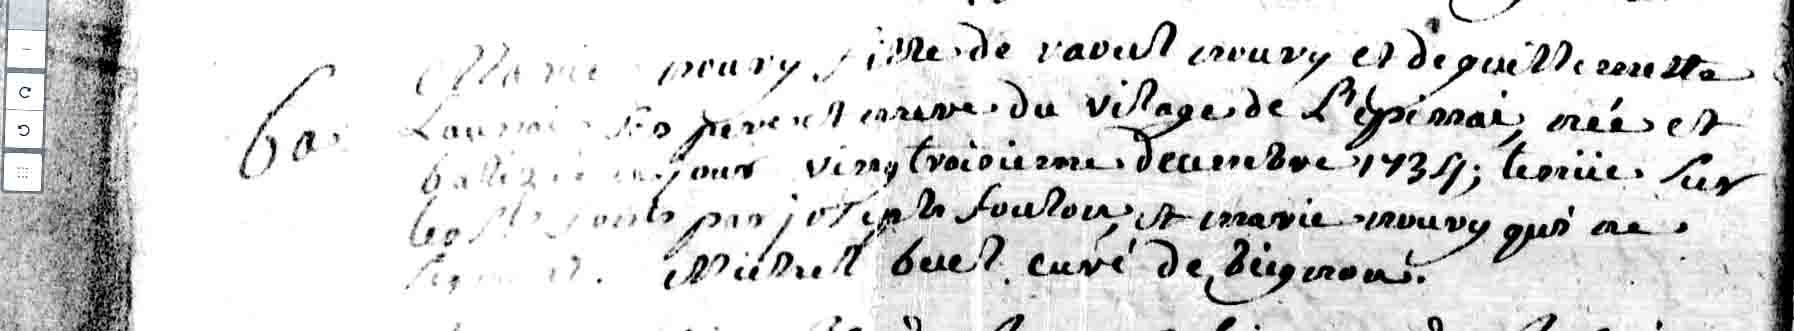 Marie noury fille de raoul noury et de guillemette
60 ses pere et mere du vilage de L'épinai, née et
batizée ce jour vingtroisieme decembre 1734; tenüe sur
les fonts par joseph foulon, et marie noury qui ne
signent. Michel buel curé de bignon.